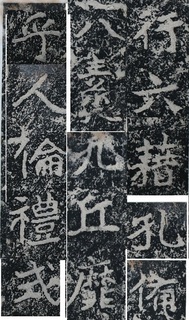 行六藉孔備
八索九丘靡
乎人倫禮式